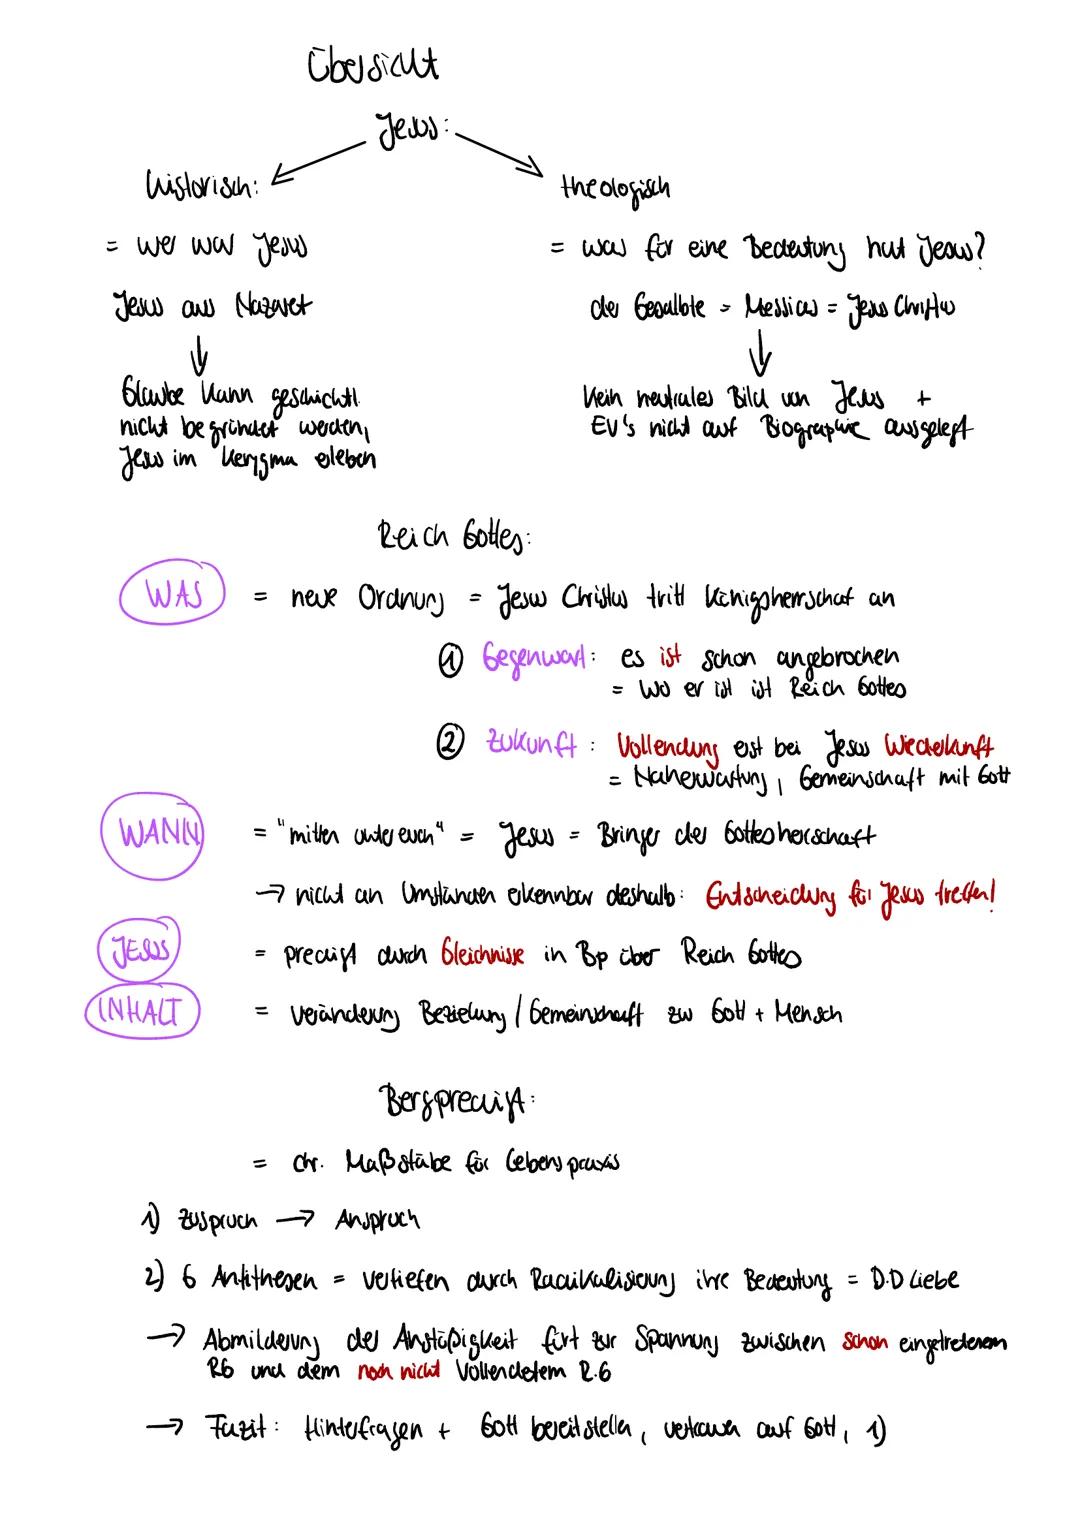 Übersicht
Jesus:
historisch:
theologisch
= wer war Jesus
= was für eine Bedeutung hat Jesus?
Jesus aus Nazaret
der Gesalbte = Messias = Jesus Christus
Glaube kann geschichtl.
nicht begründet werden,
Jesus im Kerygma erleben
Kein neutrales Bild von Jesus +
EV's nicht auf Biographie ausgelegt
Reich Gottes:
WAS = neue Ordnung = Jesus Christus tritt Königsherrschaf an
① Gegenwart: es ist schon angebrochen
= wo er ist ist Reich Gottes
② Zukunft: Vollendung erst bei Jesus Wiederkunft
= Naherwartung, Gemeinschaft mit Gott
WANN = "mitten unter euch" = Jesus = Bringer der Gottesherrschaft
→ nicht an Umständen erkennbar deshalb: Entscheidung für Jesus treffen!
JESUS = predigt durch Gleichnisse in Bp über Reich Gottes
INHALT = veränderung Beziehung / Gemeinschaft zw Gott + Mensch
Bergpredigt:
= chr. Maßstäbe für Lebenspraxis
1) Zuspruch → Anspruch
2) 6 Antithesen = vertiefen durch Radikalisierung ihre Bedeutung = D.D Liebe
→ Abmilderung der Anstößigkeit fürt zur Spannung zwischen schon eingetretenem
RG und dem noch nicht Vollendetem R.G
→ Fazit: Hinterfragen + Gott bereitstellen, vertrauen auf Gott, 1)